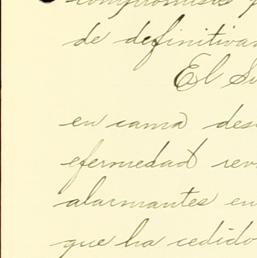 compromisos
de definitiva
El S
en cama des
efermedad re
alarmantes en
que ha cedido